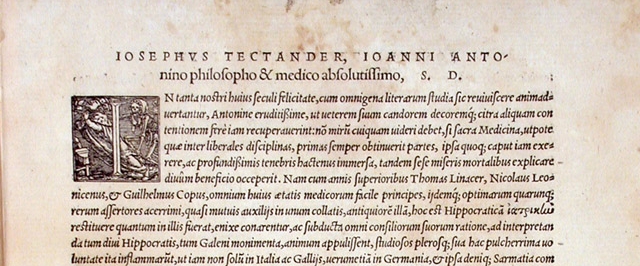 IOSEPHVS TECTANDER, IOANNI ANTO-
nino philosopho & medico absolutissimo, S. D.
IN tanta nostri huius seculi felicitate, cum omnigena literarum studia sic reuiuiscere animad⸗
uertantur, Antonine eruditißime, ut ueterem suum candorem decoremq́; citra aliquam con
tentionem ferè iam recuperauerint: nõ mirũ cuiquam uideri debet, si sacra Medicina, utpote
quæ inter liberales disciplinas, primas semper obtinuerit partes, ipsa quoq; caput iam exe⸗
rere, ac profundißimis tenebris hactenus immersa, tandem sese miseris mortalibus explicare
diuûm beneficio occeperit. Nam cum annis superioribus Thomas Linacer, Nicolaus Leo⸗
nicenus, & Guilhelmus Copus, omnium huius ætatis medicorum facile principes, ijdemq́; optimarum quarunq;
rerum assertores acerrimi, quasi mutuis auxilijs in unum collatis, antiquiorẽ illã, hoc est Hippocraticã ἰατρικὴν
restituere quantum in illis fuerat, enixe conarentur, ac subducta omni consiliorum suorum ratione, ad interpretan
da tum diui Hippocratis, tum Galeni monimenta, animum appulissent, studiosos plerosq; sua hac pulcherrima uo
luntate ita inflammârũt, ut iam non solũ in Italia ac Gallijs, uerumetiã in Germania, & ipsa deniq; Sarmatia com